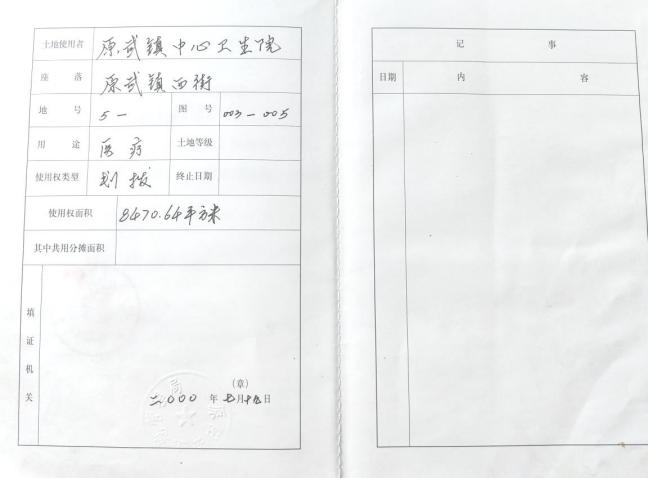 土地使用者 原武镇中心卫生院
座落 原武镇西街
地号 5- 图号 003-005
用途 医疗 土地等级
使用权类型 划拨 终止日期
使用权面积 8470.64平方米
其中共用分摊面积
填证机关
(章)
二000年七月十九日
记事
日期 内容